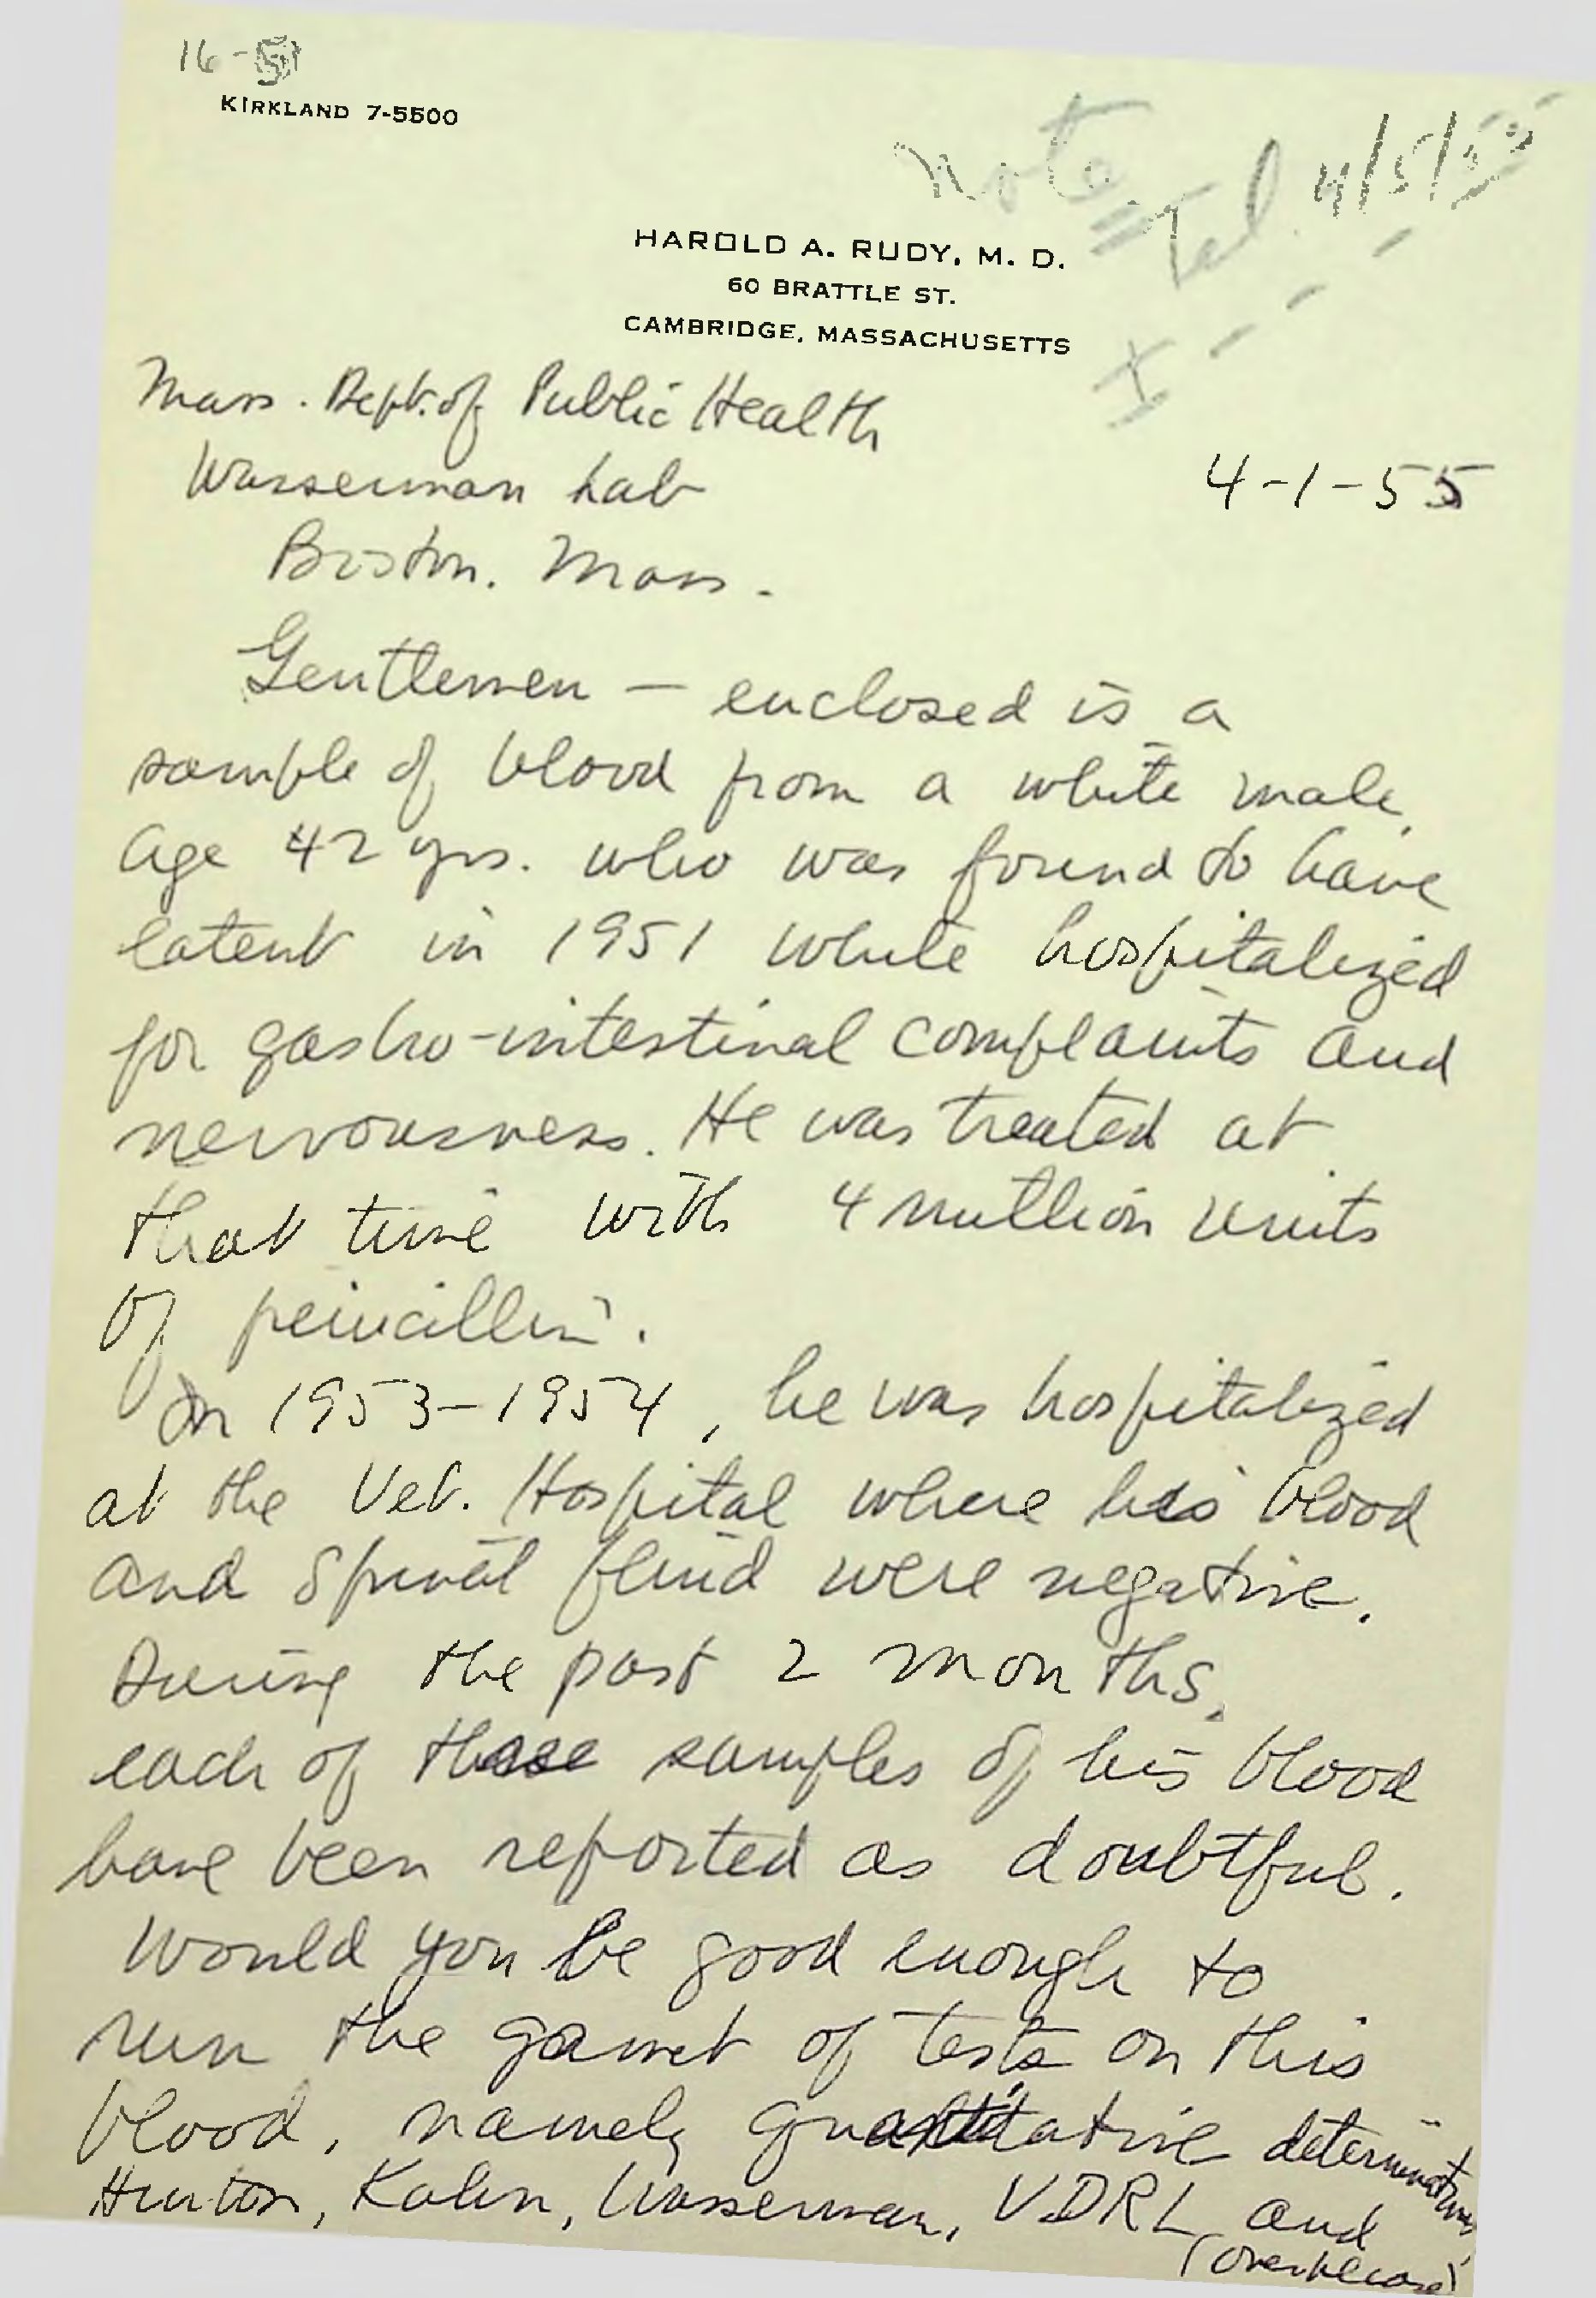 16-
KIRKLAND 7-5500
Note Tel. 4/5/55
HAROLD A. RUDY, M. D.
60 BRATTLE ST.
CAMBRIDGE, MASSACHUSETTS
Mass. Dept. of Public Health
Wasserman Lab
4-1-55
Boston. Mass.
Gentlemen — enclosed is a
sample of blood from a white male,
age 42 yrs. who was found to have
latent in 1951 while hospitalized
for gastro-intestinal complaints and
nervousness. He was treated at
that time with 4 million units
of penicillin.
In 1953-1954, he was hospitalized
at the Vet. Hospital where his blood
and spinal fluid were negative.
During the past 2 months,
each of these samples of his blood
have been reported as doubtful.
Would you be good enough to
run the gamet of tests on this
blood, namely quantitative determinations,
Hinton, Kahn, Wasserman, VDRL, and
(over please)